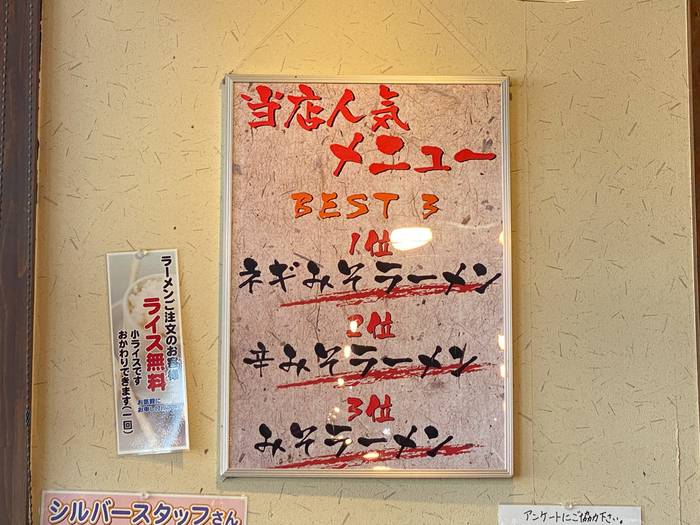 当店人気
メニュー
BEST 3
1位
ネギみそラーメン
2位
辛みそラーメン
3位
みそラーメン
ラーメンご注文のお客様
ライス無料
お気軽に
小ライスです
おかわりできます(一回)
シルバースタッフさん
アンケートにご協力下さい。